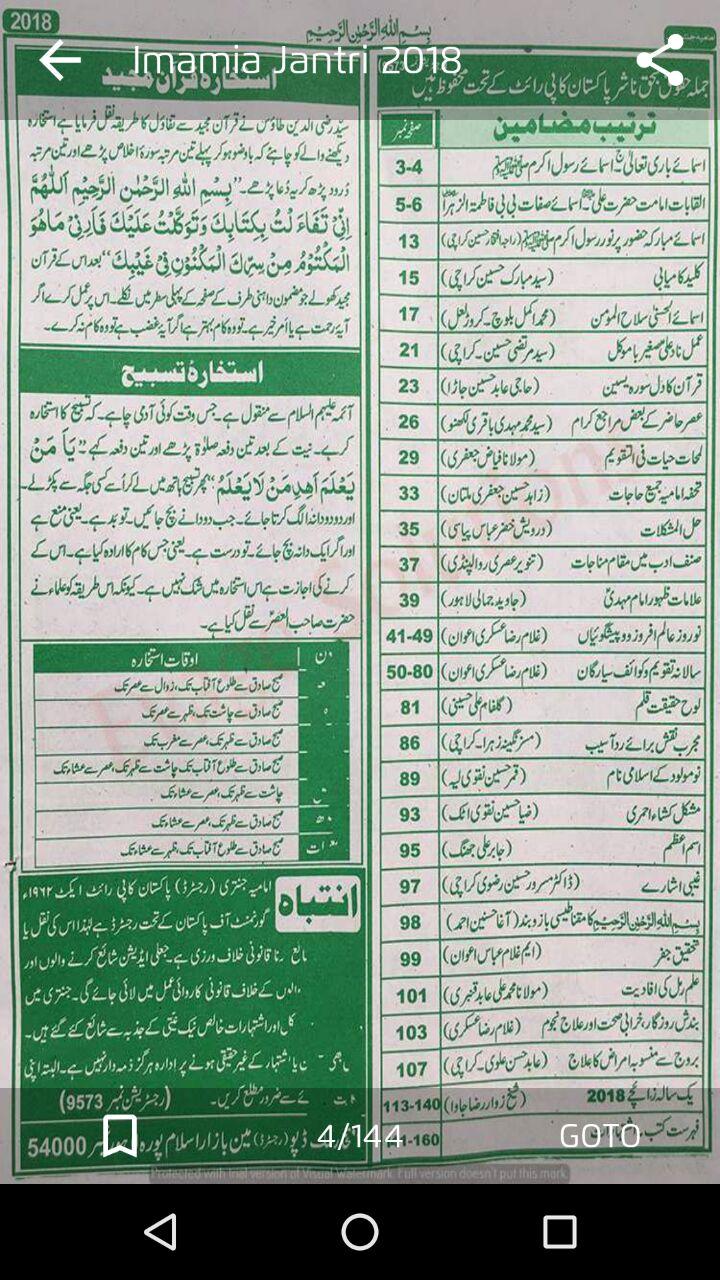 2018
بسم اللہ الرحمٰن الرحیم
Imamia Jantri 2018
جملہ حقوق بحق ناشر پاکستان کاپی رائٹ کے تحت محفوظ ہیں
ترتیب مضامین
صفحہ نمبر
اسمائے باری تعالیٰ۔ اسمائے رسول اکرم ﷺ 3-4
القابات امامت حضرت علیؑ۔ اسمائے صفات بی بی فاطمۃ الزہرا 5-6
اسمائے مبارکہ حضور پر نور رسول اکرم ﷺ (راجہ افتخار حسین کراچی) 13
کلید کامیابی (سید مبارک حسین کراچی) 15
اسمائے الحسنیٰ سلاح المومن (محمد اکمل بلوچ۔ کروڑ لعل) 17
عمل ناد علی صغیر باموکل (سید مرتضیٰ حسین۔ کراچی) 21
قرآن کا دل سورہ یسین (حاجی عابد حسین جاڑا) 23
عصر حاضر کے بعض مراجع کرام (سید محمد مہدی باقری لکھنو) 26
لمحات حیات فی التقویم (مولانا فیاض جعفری) 29
تحفہ امامیہ جمیع حاجات (زاہد حسین جعفری ملتان) 33
حل المشکلات (درویش خضر عباس پیاسی) 35
صنف ادب میں مقام مناجات (تنویر عصری روالپنڈی) 37
علامات ظہور امام مہدیؑ (جاوید جمالی لاہور) 39
نوروز عالم افروز و پیشگوئیاں (غلام رضا عسکری اعوان) 41-49
سالانہ تقویم و کوائف سیارگان (غلام رضا عسکری اعوان) 50-80
لوح حقیقت قلم (گلفام علی حسینی) 81
مجرب نقش برائے رد آسیب (مسز نگینہ زہرا۔ کراچی) 86
نومولود کے اسلامی نام (قمر حسین نقوی لیہ) 89
مشکل کشاء احمری (ضیا حسین نقوی اٹک) 93
اسم اعظم (جابر علی جھنگ) 95
غیبی اشارے (ڈاکٹر مسرور حسین رضوی کراچی) 97
بسم اللہ الرحمٰن الرحیم کا مقناطیسی بازو بند (آغا حسنین احمد) 98
تحقیق جفر (ایم غلام عباس اعوان) 99
علم رمل کی افادیت (مولانا محمد علی عابد قنبری) 101
بندش روزگار، خرابی صحت اور علاج نجوم (غلام رضا عسکری) 103
بروج سے منسوبہ امراض کا علاج (عابد حسن علوی۔ کراچی) 107
یک سالہ زائچے 2018 (شیخ زوار رضا جاوا) 113-140
فہرست کتب 1-160
استخارہ قرآن مجید
سید رضی الدین طاؤس نے قرآن مجید سے تفاؤل کا طریقہ نقل فرمایا ہے استخارہ
دیکھنے والے کو چاہئے کہ باوضو ہو کر پہلے تین مرتبہ سورۃ اخلاص پڑھے اور تین مرتبہ
درود پڑھ کر یہ دعا پڑھے۔ ”بِسْمِ اللهِ الرَّحْمٰنِ الرَّحِيْمِ اَللّٰهُمَّ
اِنِّيْ تَفَاءَ لْتُ بِكِتَابِكَ وَتَوَكَّلْتُ عَلَيْكَ فَاَرِنِيْ مَاهُوَ
الْمَكْتُوْمُ مِنْ سِرِّكَ الْمَكْنُوْنِ فِيْ غَيْبِكَ“ بعد اس کے قرآن
مجید کھولے جو مضمون داہنی طرف کے صفحہ کے پہلی سطر میں نکلے۔ اس پر عمل کرے اگر
آیۂ رحمت ہے یا امر خیر ہے۔ تو وہ کام بہتر ہے اگر آیۂ غضب ہے تو وہ کام نہ کرے۔
استخارۂ تسبیح
آئمہ علیہم السلام سے منقول ہے۔ جس وقت کوئی آدمی چاہے۔ کہ تسبیح کا استخارہ
کرے۔ نیت کے بعد تین دفعہ صلوٰۃ پڑھے اور تین دفعہ کہے۔ ”يَا مَنْ
يَعْلَمُ اِهْدِ مَنْ لَا يَعْلَمُ“ پھر تسبیح ہاتھ میں لے کر اُسے کسی جگہ سے پکڑ لے۔
اور دو دو دانہ الگ کرتا جائے۔ جب دو دانے بچ جائیں۔ تو بد ہے۔ یعنی منع ہے
اور اگر ایک دانہ بچ جائے۔ تو درست ہے۔ یعنی جس کام کا ارادہ کیا ہے۔ اس کے
کرنے کی اجازت ہے اس استخارہ میں شک نہیں ہے۔ کیونکہ اس طریقہ کو علماء نے
حضرت صاحب العصرؑ سے نقل کیا ہے۔
اوقات استخارہ
صبح صادق سے طلوع آفتاب تک، زوال سے عصر تک
صبح صادق سے چاشت تک، ظہر سے عصر تک
صبح صادق سے ظہر تک، عصر سے مغرب تک
صبح صادق سے طلوع آفتاب تک چاشت سے ظہر تک، عصر سے عشاء تک
چاشت سے ظہر تک، عصر سے عشاء تک
صبح صادق سے ظہر تک، عصر سے عشاء تک
صبح صادق سے طلوع آفتاب تک، ظہر سے عشاء تک
انتباہ
امامیہ جنتری (رجسٹرڈ) پاکستان کاپی رائٹ ایکٹ ۱۹۶۲ء
گورنمنٹ آف پاکستان کے تحت رجسٹرڈ ہے لہٰذا اس کی نقل یا
قانونی خلاف ورزی ہے۔ جعلی ایڈیشن شائع کرنے والوں اور
والوں کے خلاف قانونی کاروائی عمل میں لائی جائے گی۔ جنتری میں
اور اشتہارات خالص نیک نیتی کے جذبہ سے شائع کئے گئے ہیں۔
یا اشتہار کے غیر حقیقی ہونے پر ادارہ ہرگز ذمہ دار نہیں ہے۔ البتہ اپنی
سے ضرور مطلع کریں۔ (رجسٹریشن نمبر 9573)
ڈپو (رجسٹرڈ) مین بازار اسلام پورہ 54000
4/144
GOTO
Protected with trial version of Visual Watermark. Full version doesn't put this mark.